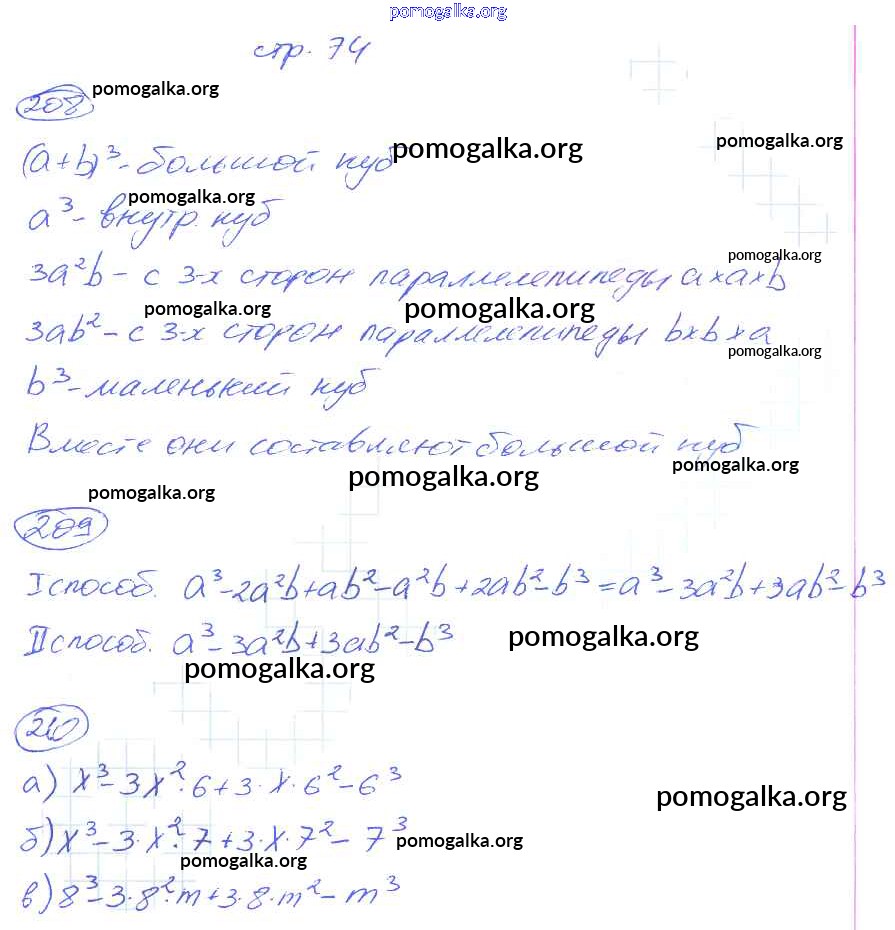 pomogalka.org
стр. 74
208 pomogalka.org
(a+b)³ - большой куб pomogalka.org pomogalka.org
pomogalka.org
a³ - внутр. куб
pomogalka.org
3a²b - с 3-х сторон параллелепипеды a×a×b
pomogalka.org pomogalka.org
3ab² - с 3-х сторон параллелепипеды b×b×a
pomogalka.org
b³ - маленький куб
Вместе они составляют большой куб
pomogalka.org pomogalka.org
pomogalka.org
209
I способ. a³-2a²b+ab²-a²b+2ab²-b³=a³-3a²b+3ab²-b³
II способ. a³-3a²b+3ab²-b³ pomogalka.org
pomogalka.org
210
а) x³-3x²·6+3·x·6²-6³
pomogalka.org
б) x³-3·x²·7+3·x·7²-7³ pomogalka.org
pomogalka.org
в) 8³-3·8²·m+3·8·m²-m³